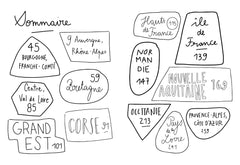 Sommaire
45
BOURGOGNE,
FRANCHE-COMTÉ
9 Auvergne,
Rhône-Alpes
Centre,
Val de Loire
85
59
Bretagne
GRAND
EST 101
CORSE
Hauts
de France
île
de France
139
NOR
MAN
DIE
147
NOUVELLE
AQUITAINE 169
OCCITANIE
213
Pays
de la
Loire
PROVENCE-ALPES,
CÔTE D'AZUR